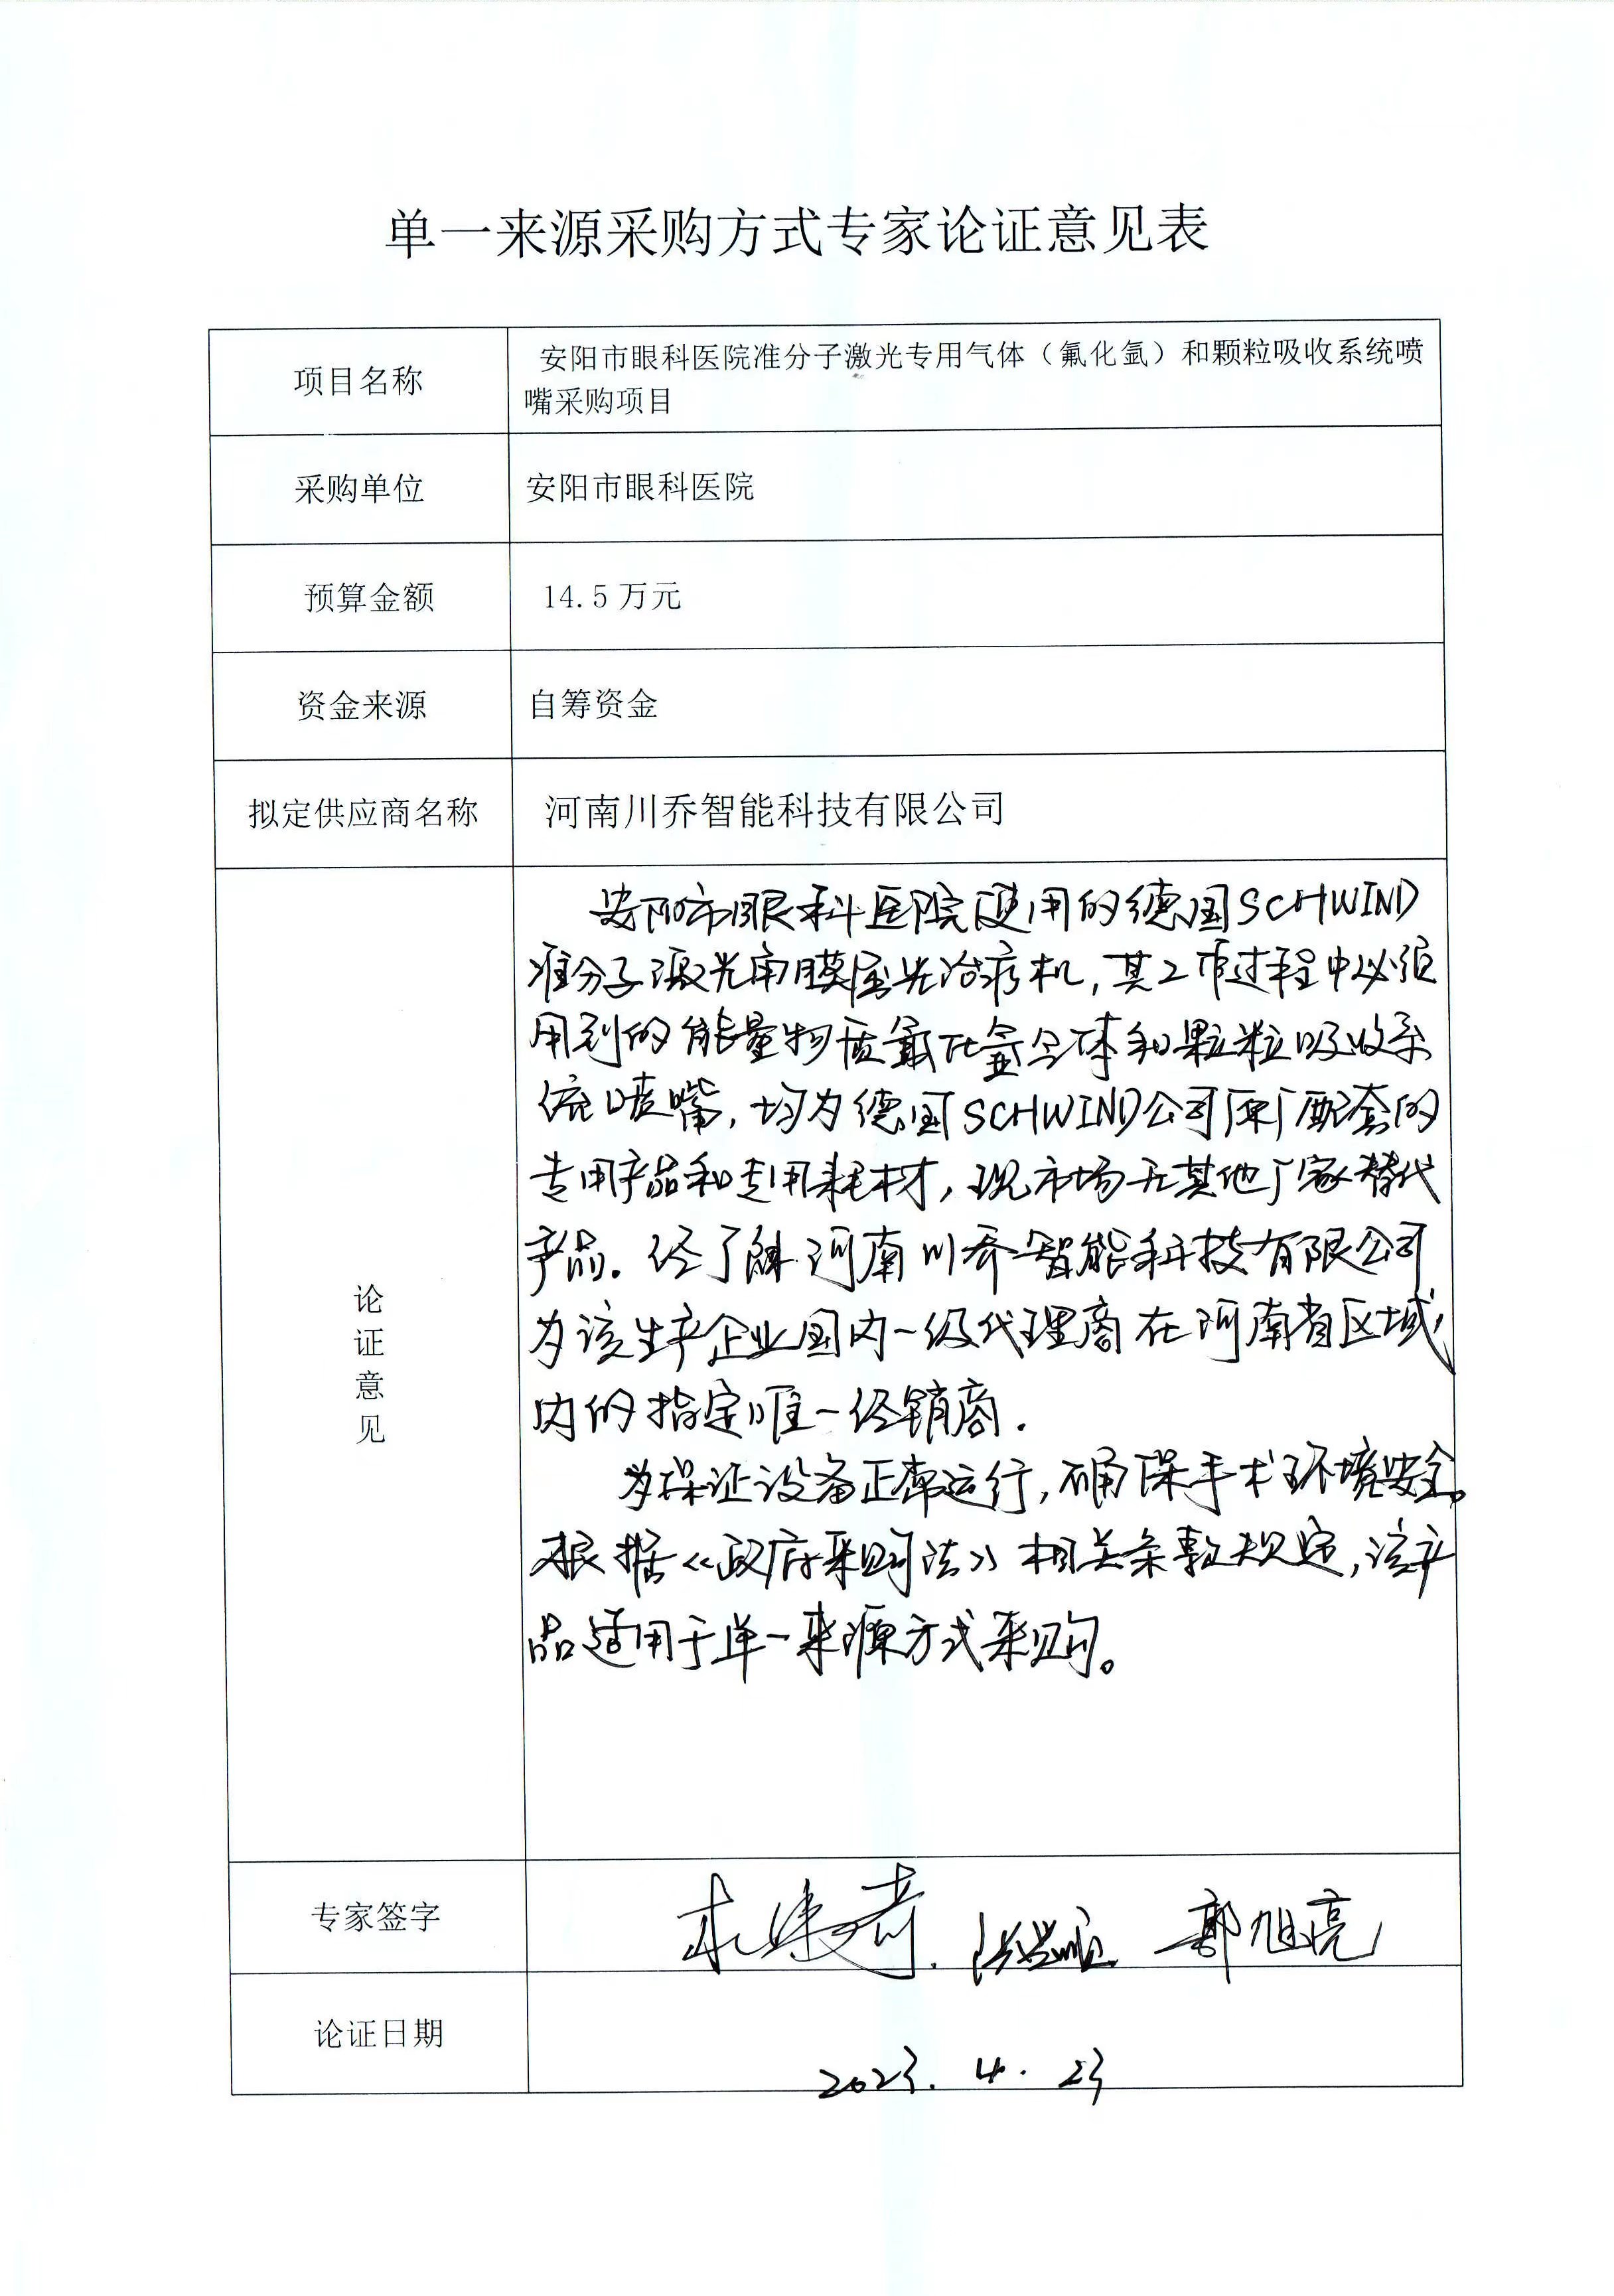 单一来源采购方式专家论证意见表
项目名称
安阳市眼科医院准分子激光专用气体（氟化氩）和颗粒吸收系统喷
嘴采购项目
采购单位
安阳市眼科医院
预算金额
14.5万元
资金来源
自筹资金
拟定供应商名称
河南川乔智能科技有限公司
论
证
意
见
安阳市眼科医院使用的德国SCHWIND
准分子激光角膜屈光治疗机,其工作过程中必须
用到的能量物质氟化氩气体和颗粒吸收系
统喷嘴,均为德国SCHWIND公司原厂配套的
专用产品和专用耗材,现市场无其他厂家替代
产品。经了解河南川乔智能科技有限公司
为该生产企业国内一级代理商在河南省区域
内的指定唯一经销商.
为保证设备正常运行,确保手术环境安全。
根据《政府采购法》相关条款规定,该产
品适用于单一来源方式采购。
专家签字
郭旭亮
论证日期
2023.4.23